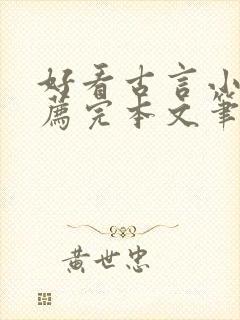 好看古言小
薦完本文筆
黄世忠